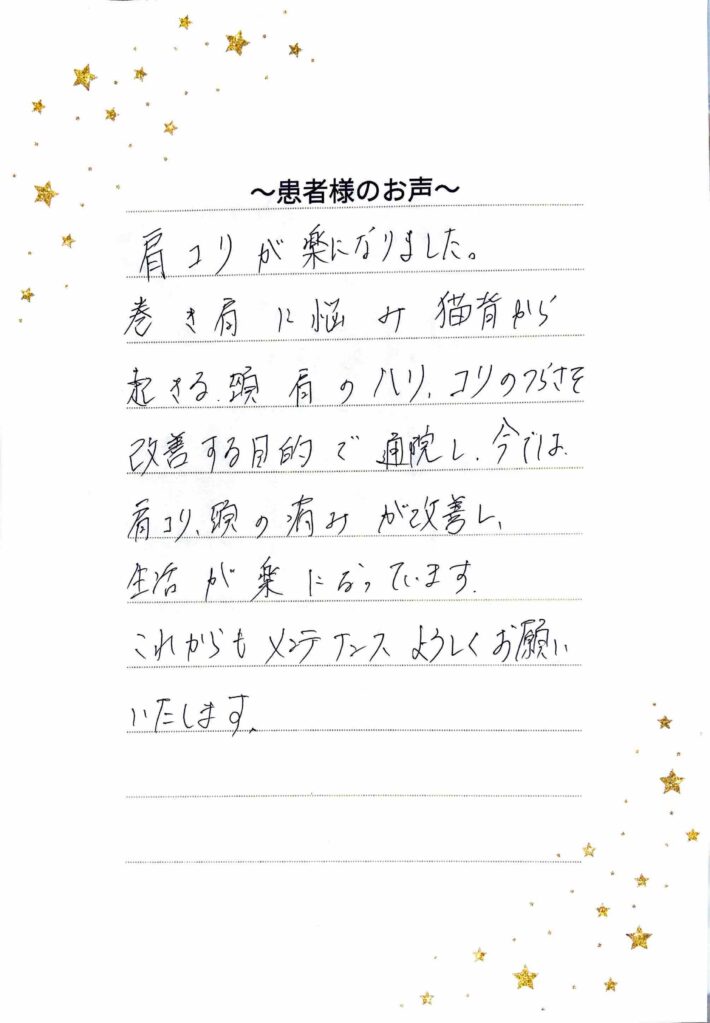 ～患者様のお声～
肩コリが楽になりました。
巻き肩に悩み猫背から
起きる、頭肩のハリ、コリのつらさを
改善する目的で通院し、今では
肩コリ、頭の痛みが改善し、
生活が楽になっています。
これからもメンテナンスよろしくお願い
いたします。